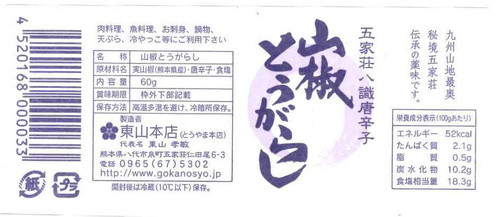 肉料理、魚料理、お刺身、鍋物、
天ぷら、冷やっこ等にご利用下さい
名称 山椒とうがらし
原材料名 実山椒(熊本県産)・唐辛子・食塩
内容量 60g
賞味期限 枠外下部記載
保存方法 高温多湿を避け、冷暗所保存。
製造者
東山本店 (とうやま本店)
代表者名 東山 孝敏
熊本県八代市泉町五家荘仁田尾6-3
☎ 0965(67)5302
http://www.gokanosyo.jp
開封後は冷蔵(10℃以下)で保存。
4520168000033
紙
プラ
山椒
とうがらし
五家荘八識唐辛子
九州山地最奥
秘境五家荘
伝承の薬味です。
栄養成分表示(100gあたり)
エネルギー 52kcal
たんぱく質 2.1g
脂質 0.5g
炭水化物 10.2g
食塩相当量 18.3g